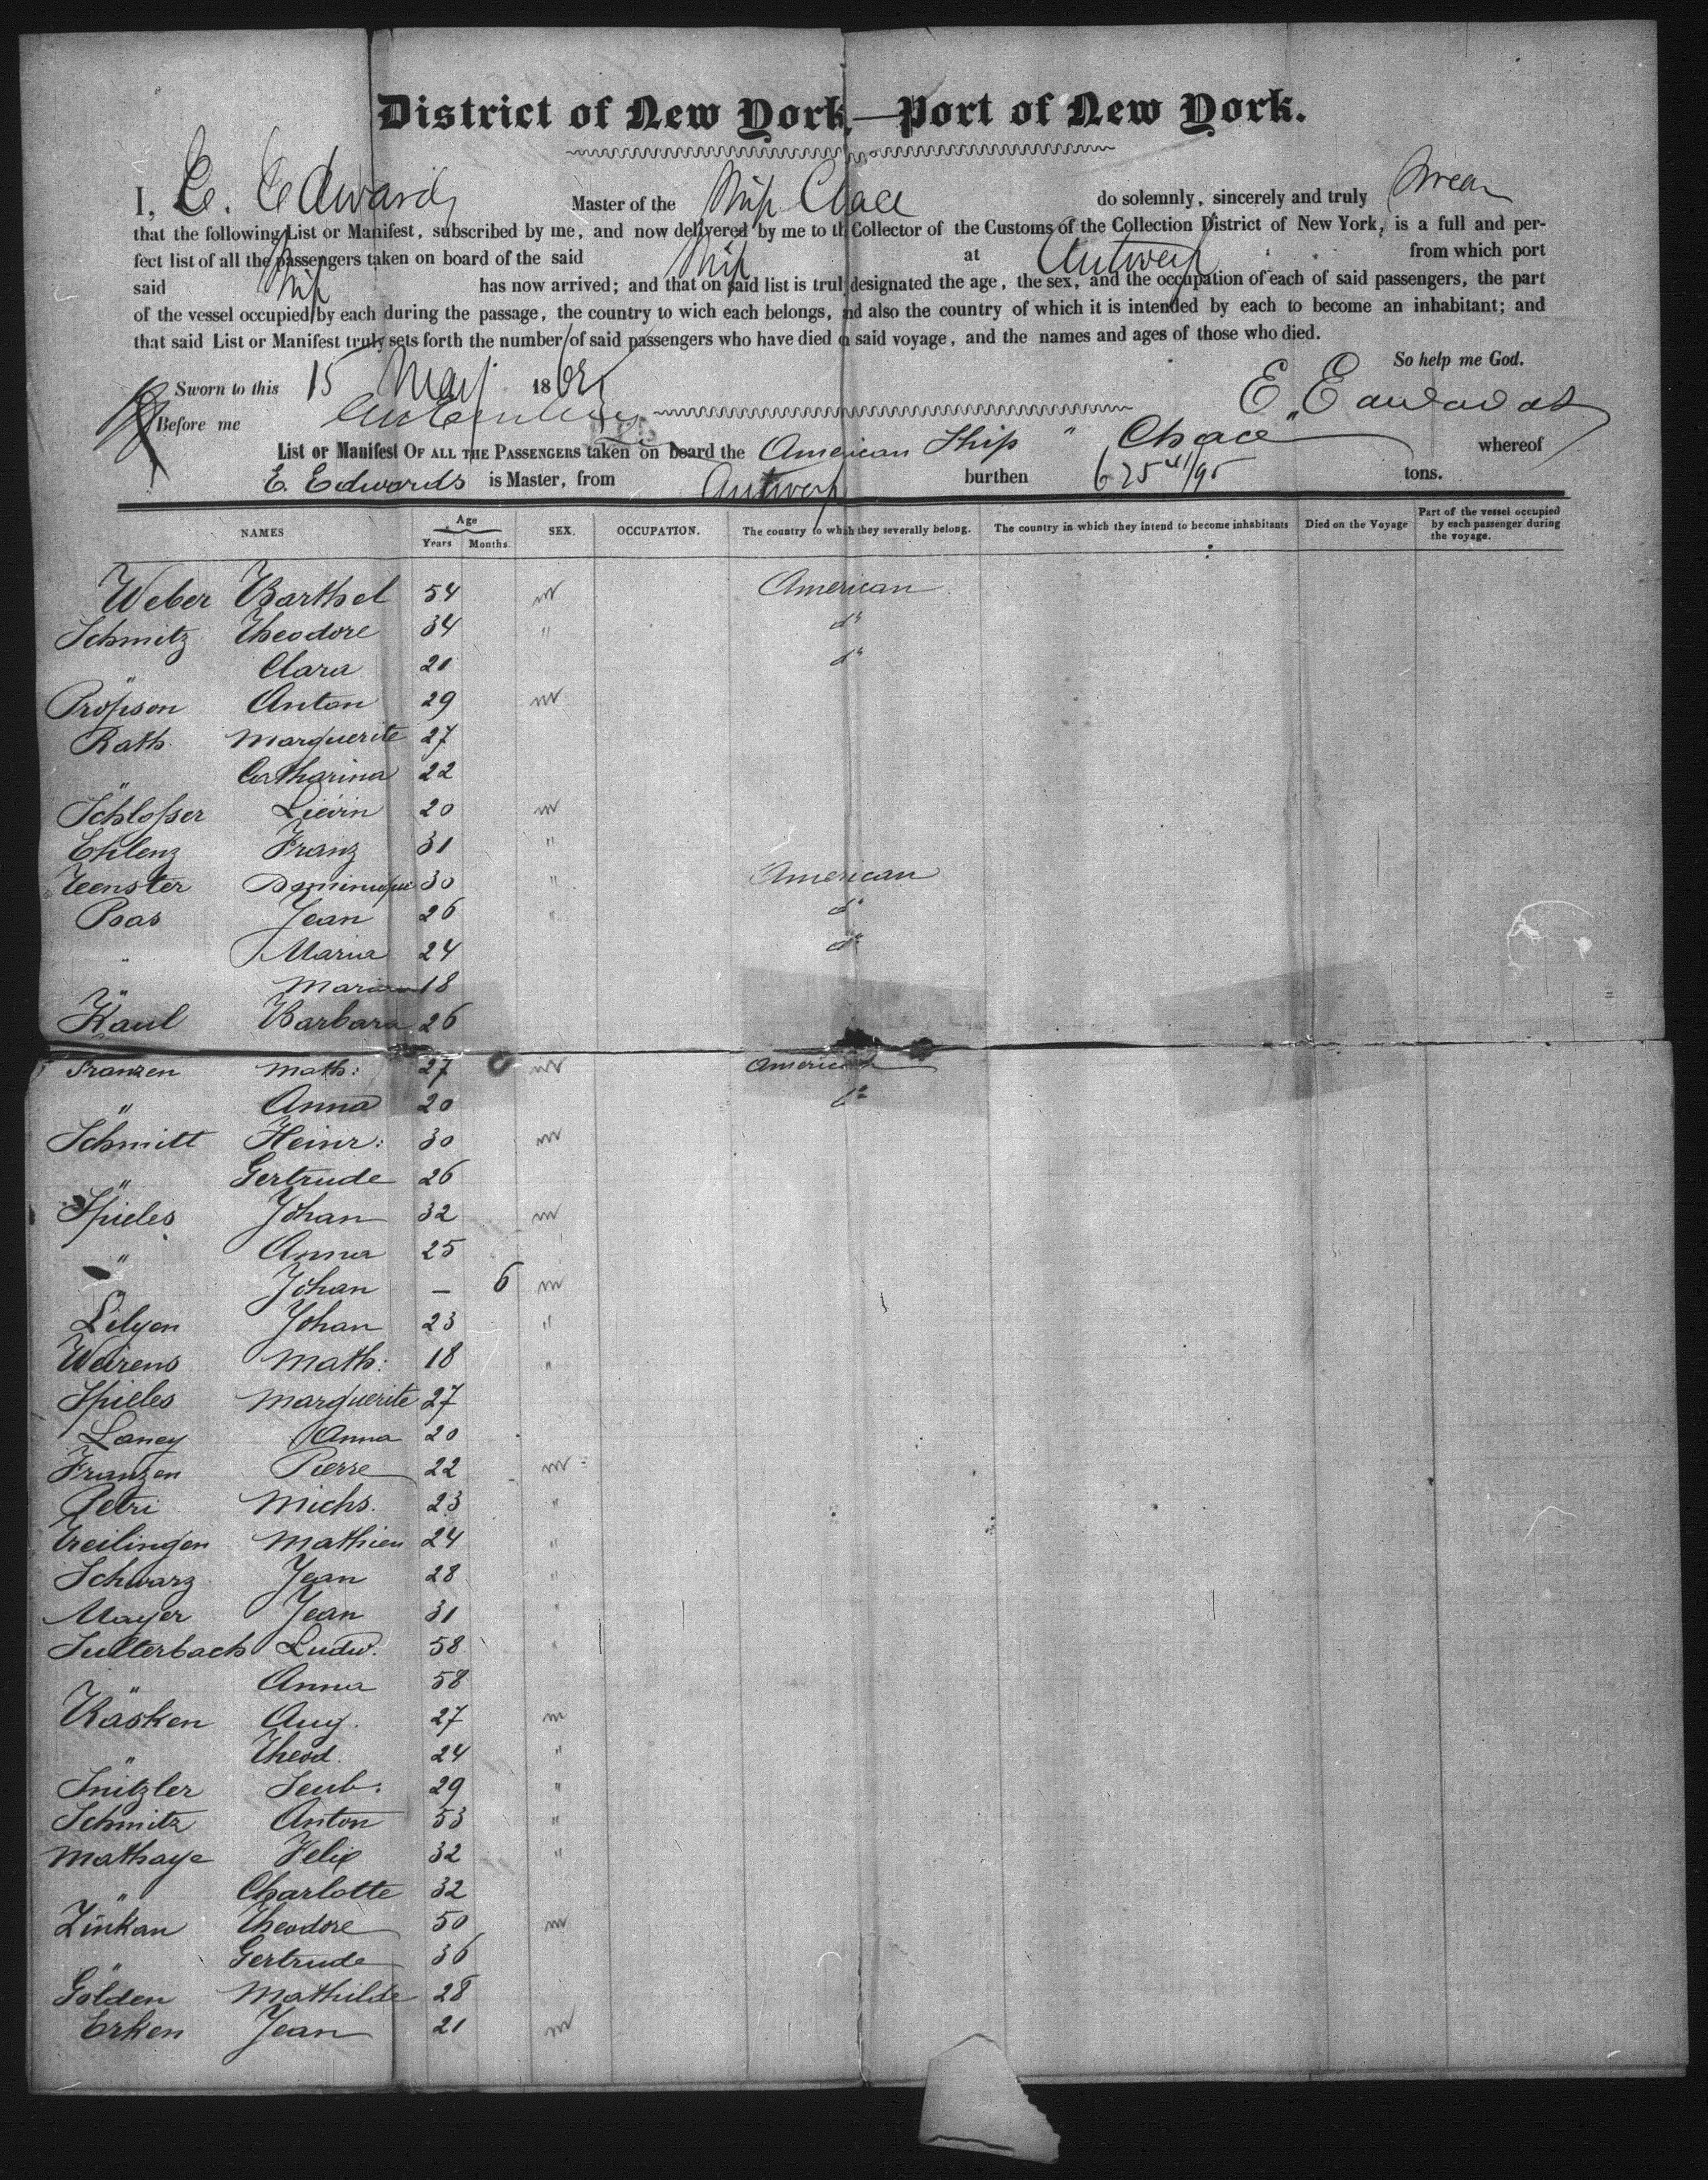 District of New York,—Port of New York.
I, E. Edwards Master of the Ship Chace do solemnly, sincerely and truly Swear
that the following List or Manifest, subscribed by me, and now delivered by me to th Collector of the Customs of the Collection District of New York, is a full and per-
fect list of all the passengers taken on board of the said Ship at Antwerp from which port
said Ship has now arrived; and that on said list is trul designated the age, the sex, and the occupation of each of said passengers, the part
of the vessel occupied by each during the passage, the country to wich each belongs, nd also the country of which it is intended by each to become an inhabitant; and
that said List or Manifest truly sets forth the number of said passengers who have died o said voyage, and the names and ages of those who died.
So help me God.
Sworn to this 15 May 186
E. Edwards
Before me
List or Manifest OF ALL THE PASSENGERS taken on board the American Ship " Chace " whereof
E. Edwards is Master, from Antwerp burthen 625 41/95 tons.
NAMES Age Years Months. SEX. OCCUPATION. The country to which they severally belong. The country in which they intend to become inhabitants Died on the Voyage Part of the vessel occupied by each passenger during the voyage.
Weber Barthel 54 m American
Schmitz Theodore 34 " do
" Clara 21 do
Propson Anton 29 m
Rath Marguerite 27
" Catharina 22
Schlosser Lievin 20 m
Ehlenz Franz 31 "
Teenster Dominique 30 " American
Boas Jean 26 " do
" Maria 24 do
" Maria 18
Kaul Barbara 26
Franzen Math: 27 m American
" Anna 20 do
Schmitt Heinr: 30 m
" Gertrude 26
Spieles Johan 32 m
" Anna 25
" Johan — 6 m
Lelyen Johan 23 "
Weirens Math: 18 "
Spieles Marguerite 27
Laney Anna 20
Franzen Pierre 22 m
Petri Michs. 23 "
Treilingen Mathieu 24 "
Schwarz Jean 28 "
Mayer Jean 31 "
Sulterbach Ludw. 58 "
" Anna 58
Käsken Aug. 27 m
" Theod. 24 "
Snitzler Seub. 29 "
Schmitz Anton 53 "
Mathaye Felix 32 "
" Charlotte 32
Zinkan Theodore 50 m
" Gertrude 36
Golden Mathilde 28
Erken Jean 21 m